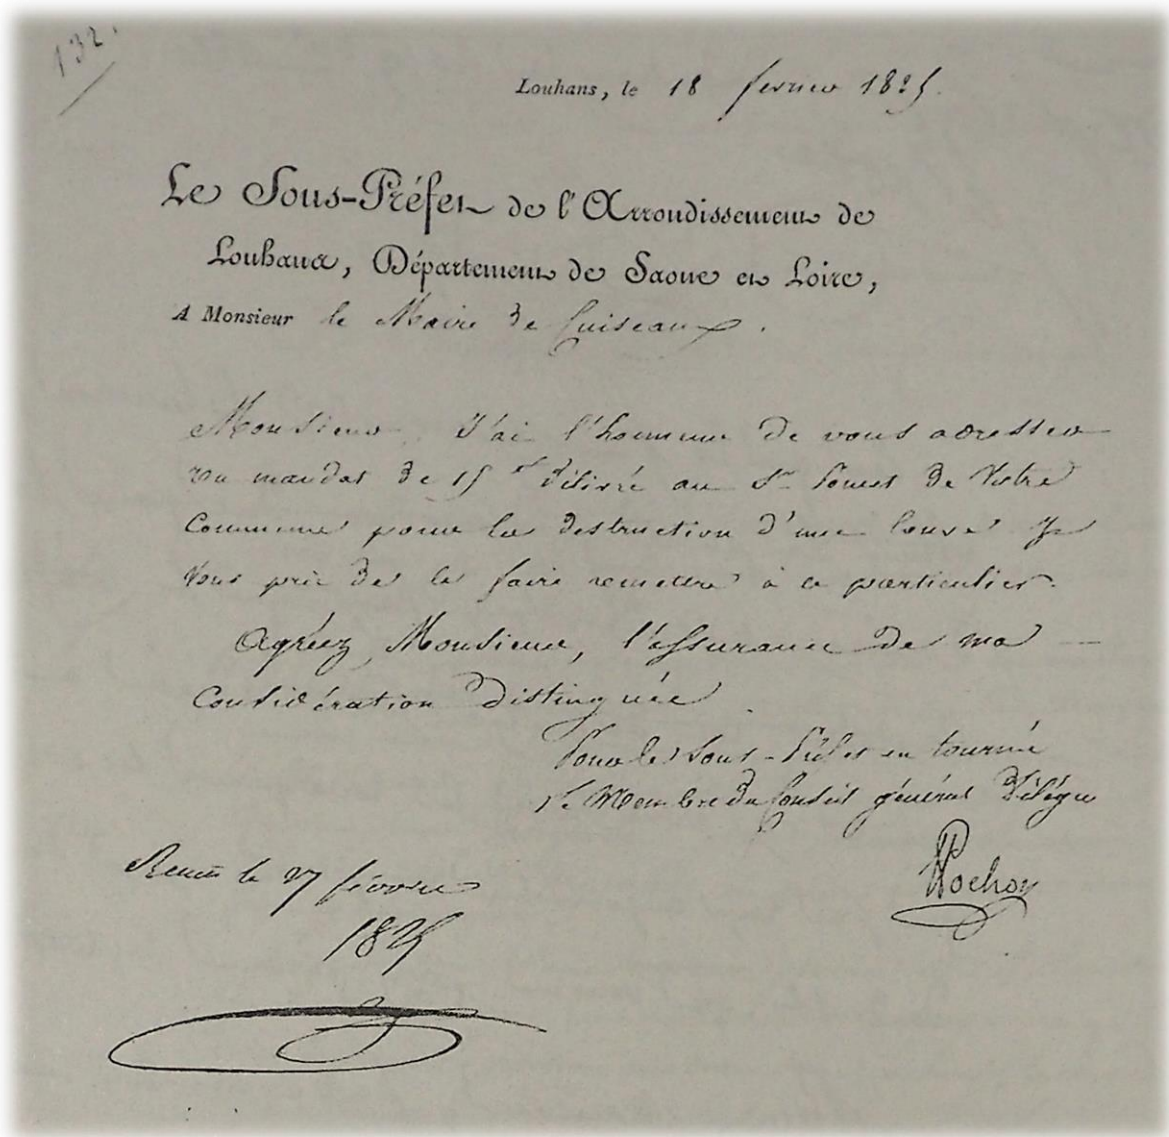 132.
Louhans, le 18 fevrier 1825.
Le Sous-Préfet de l'Arrondissement de
Louhans, Département de Saone et Loire,
A Monsieur le Maire de Cuiseaux.
Monsieur, J'ai l'honneur de vous adresser
un mandat de 15 f délivré au Sr de Votre
Commune pour la destruction d'une louve. Je
Vous prie de le faire remettre à ce particulier.
Agréez, Monsieur, l'assurance de ma
Considération Distinguée.
Pour le Sous-Préfet en tournée
le Membre du Conseil général Délégué
le 27 février
1825